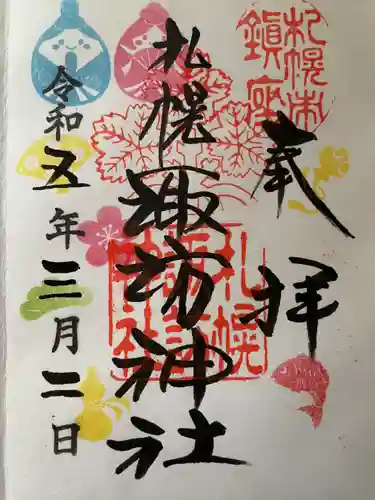 札幌市
鎮座
奉拝
札幌諏訪神社
札幌
諏訪
神社
令和五年三月二日